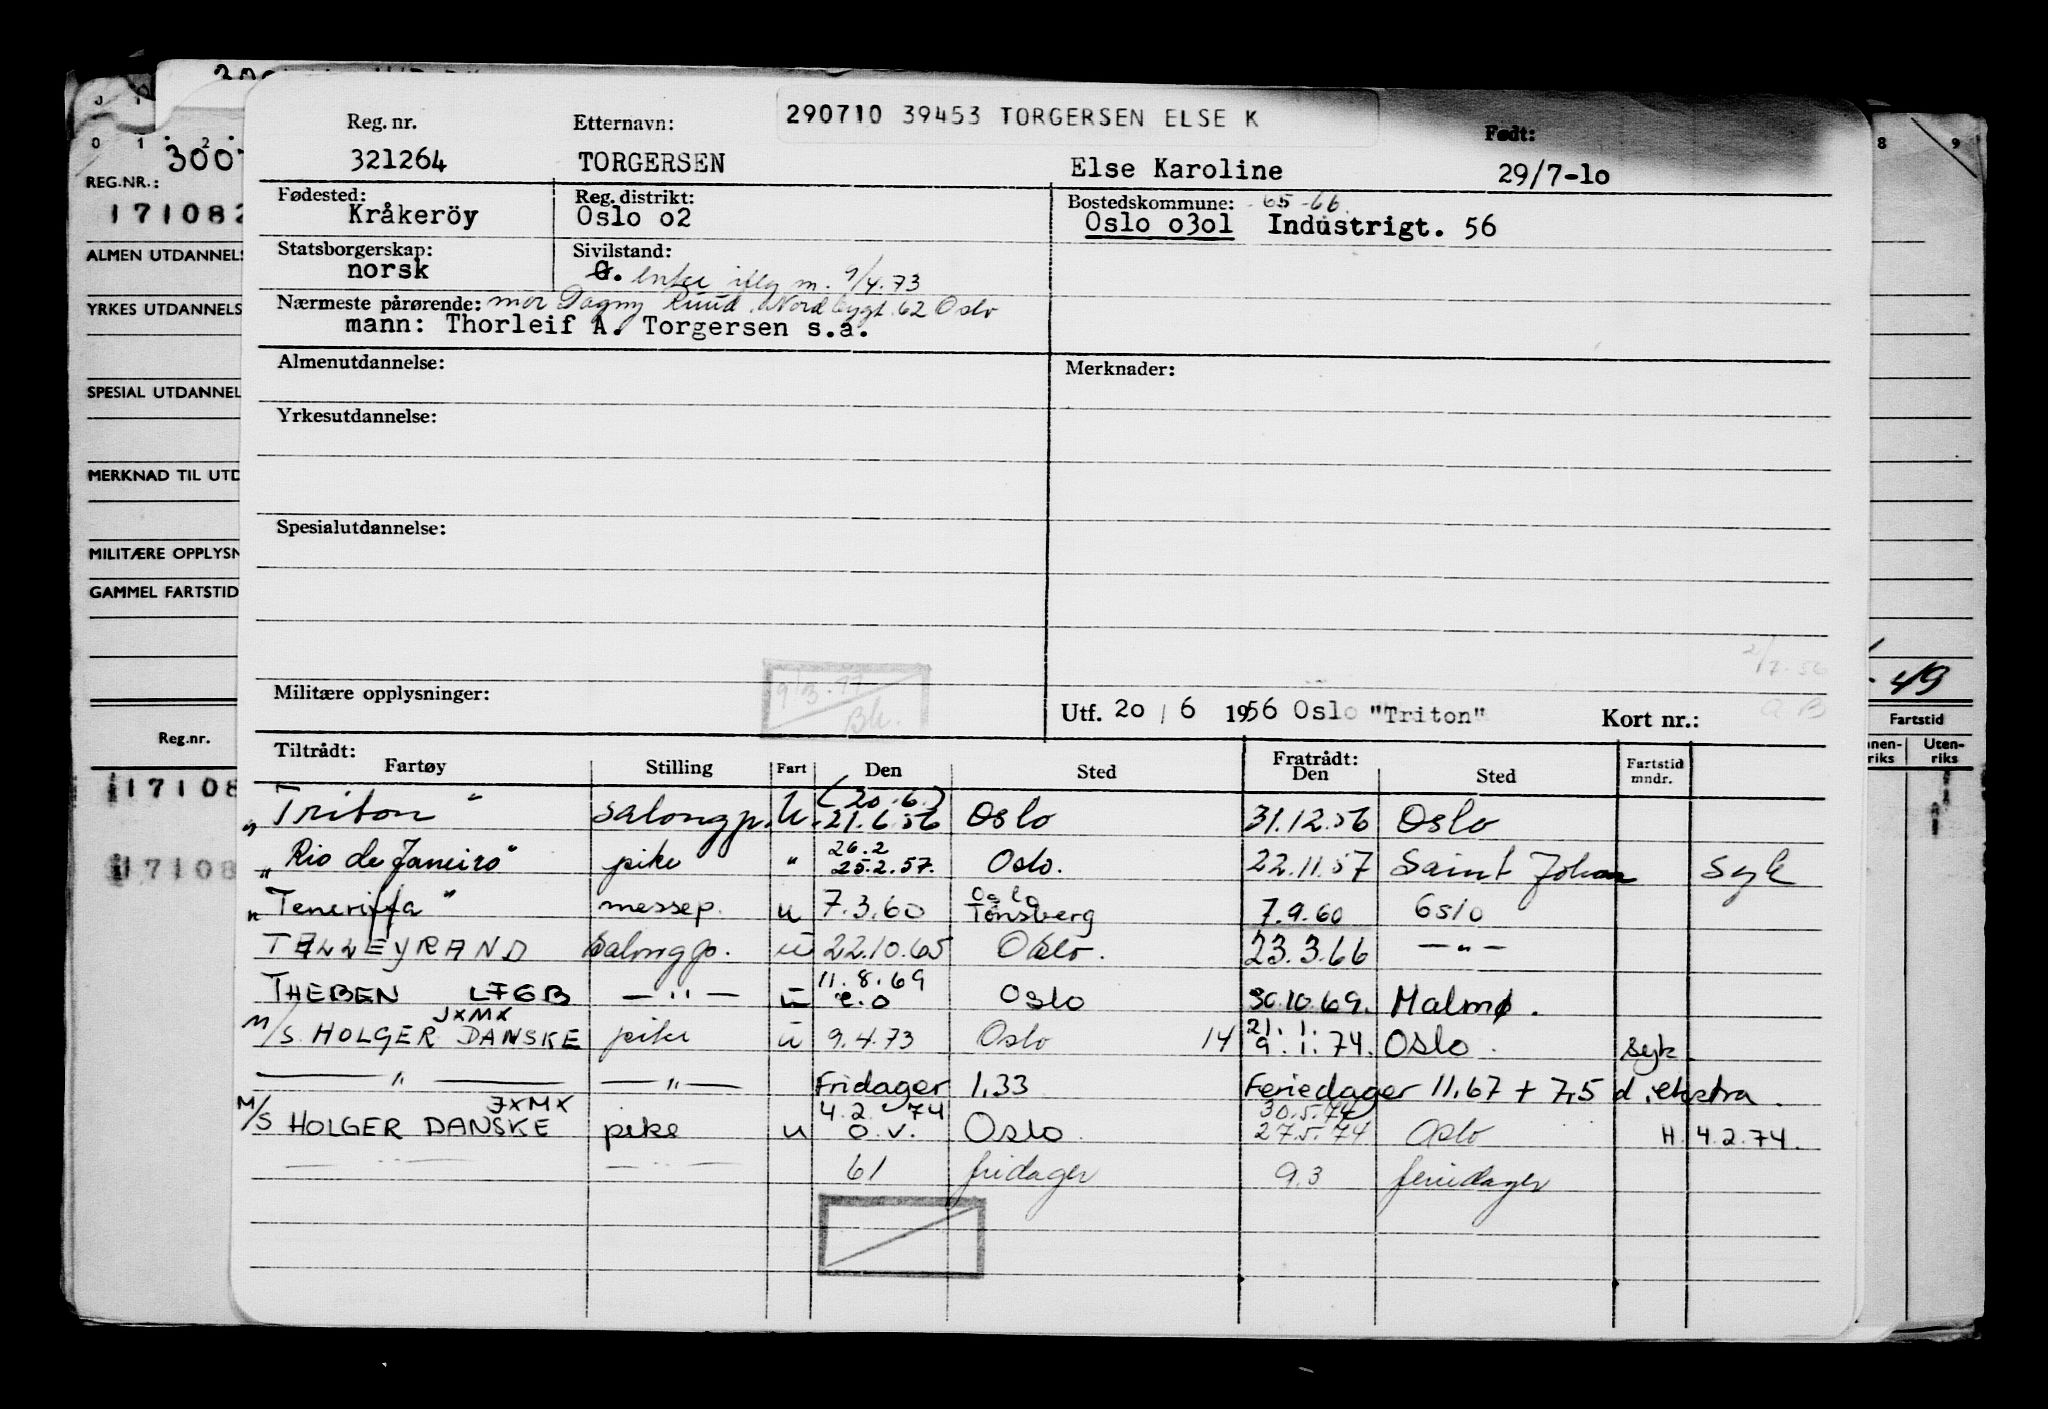 290710 39453 TORGERSEN ELSE K
Reg. nr. Etternavn: Født:
321264 TORGERSEN Else Karoline 29/7-10
Fødested: Reg. distrikt: Bostedskommune: 65-66.
Kråkeröy Oslo o2 Oslo o3o1 Industrigt. 56
Statsborgerskap: Sivilstand:
norsk G. enke iflg m. 9/4.73
Nærmeste pårørende: mor Dagny Ruud. Nordbygt. 62 Oslo
mann: Thorleif A. Torgersen s.a.
Almenutdannelse: Merknader:
Yrkesutdannelse:
Spesialutdannelse:
2/7-56
9/3-77
Bh.
Militære opplysninger: Utf. 20 / 6 1956 Oslo "Triton" Kort nr.:
Tiltrådt: Fratrådt:
Fartøy Stilling Fart Den Sted Den Sted Fartstid mndr.
(20.6.)
„Triton" salongp. U. 21.6.56 Oslo 31.12.56 Oslo
26.2
„Rio de Janeiro" pike " 25.2.57. Oslo. 22.11.57 Saint Johan syk
Oslo
„Teneriffa" messep. u 7.3.60 Tønsberg 7.9.60 Oslo
TALLEYRAND Salongp. u 22.10.65 Oslo. 23.3.66 — " —
11.8.69
THEBEN LFGB — " — u e.o Oslo 30.10.69. Malmø.
JXMX 21.1.
M/S HOLGER DANSKE pike u 9.4.73 Oslo 14 9.1.74. Oslo. syk.
— " — — " — Fridager 1,33 Feriedager 11,67 + 7,5 d. ekstra.
JXMX 4.2.74 30.5.74
M/S HOLGER DANSKE pike u o.v. Oslo 27.5.74 Oslo H. 4.2.74.
— " — — " — 61 fridager 9.3 feriedager
REG.NR.:
ALMEN UTDANNELS
YRKES UTDANNELS
SPESIAL UTDANNEL
MERKNAD TIL UTD
MILITÆRE OPPLYSN
GAMMEL FARTSTID
Reg.nr.
17108
17108
8 9
49
Fartstid
nnen-
riks
Uten-
riks